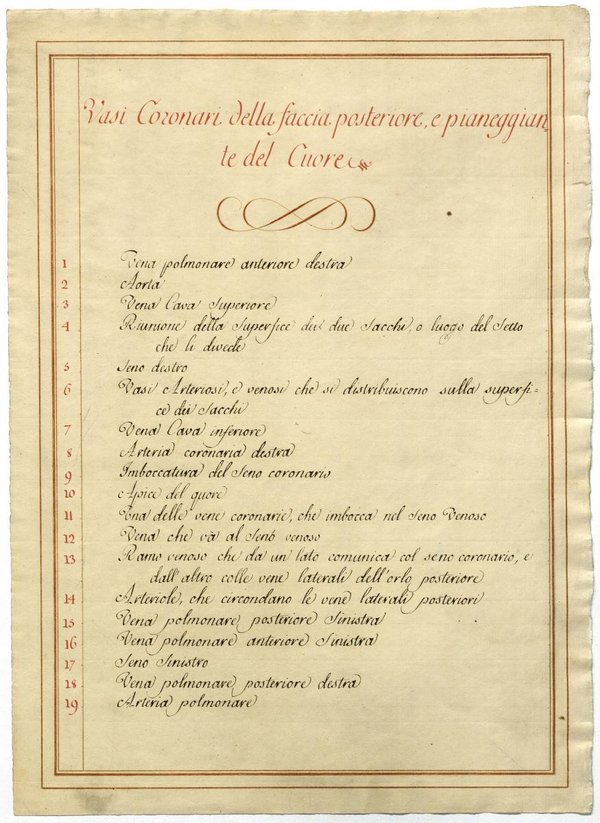 Vasi Coronari della faccia posteriore, e pianeggian,
te del Cuore
1 Vena polmonare anteriore destra
2 Aorta
3 Vena Cava Superiore
4 Riunione della Superfice dei due Sacchi, o luogo del Setto
che li divede
5 Seno destro
6 Vasi Arteriosi, e venosi che si distribuiscono sulla superfi=
ce dei Sacchi
7 Vena Cava inferiore
8 Arteria coronaria destra
9 Imboccatura del Seno coronario
10 Apice del quore
11 Una delle vene coronarie, che imbocca nel Seno Venoso
12 Vena che và al Senò venoso
13 Ramo venoso che da un lato comunica col seno coronario, e
dall'altro colle vene laterali dell'orlo posteriore
14 Arteriole, che circondano le vene laterali posteriori
15 Vena polmonare posteriore Sinistra
16 Vena polmonare anteriore Sinistra
17 Seno Sinistro
18 Vena polmonare posteriore destra
19 Arteria polmonare